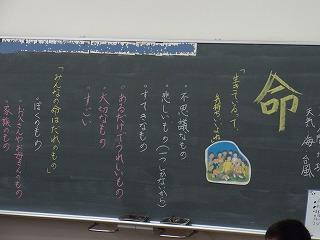 命
「生きているって、
気持ちいいよね」
・不思議なもの
・悲しいもの(一つしかないから)
・すてきなもの
・あるだけでうれしいもの
・大切なもの
・すごい
「みんなの命はだれのもの」
・ぼくのもの
・お父さんやお母さんのもの
・家族のもの